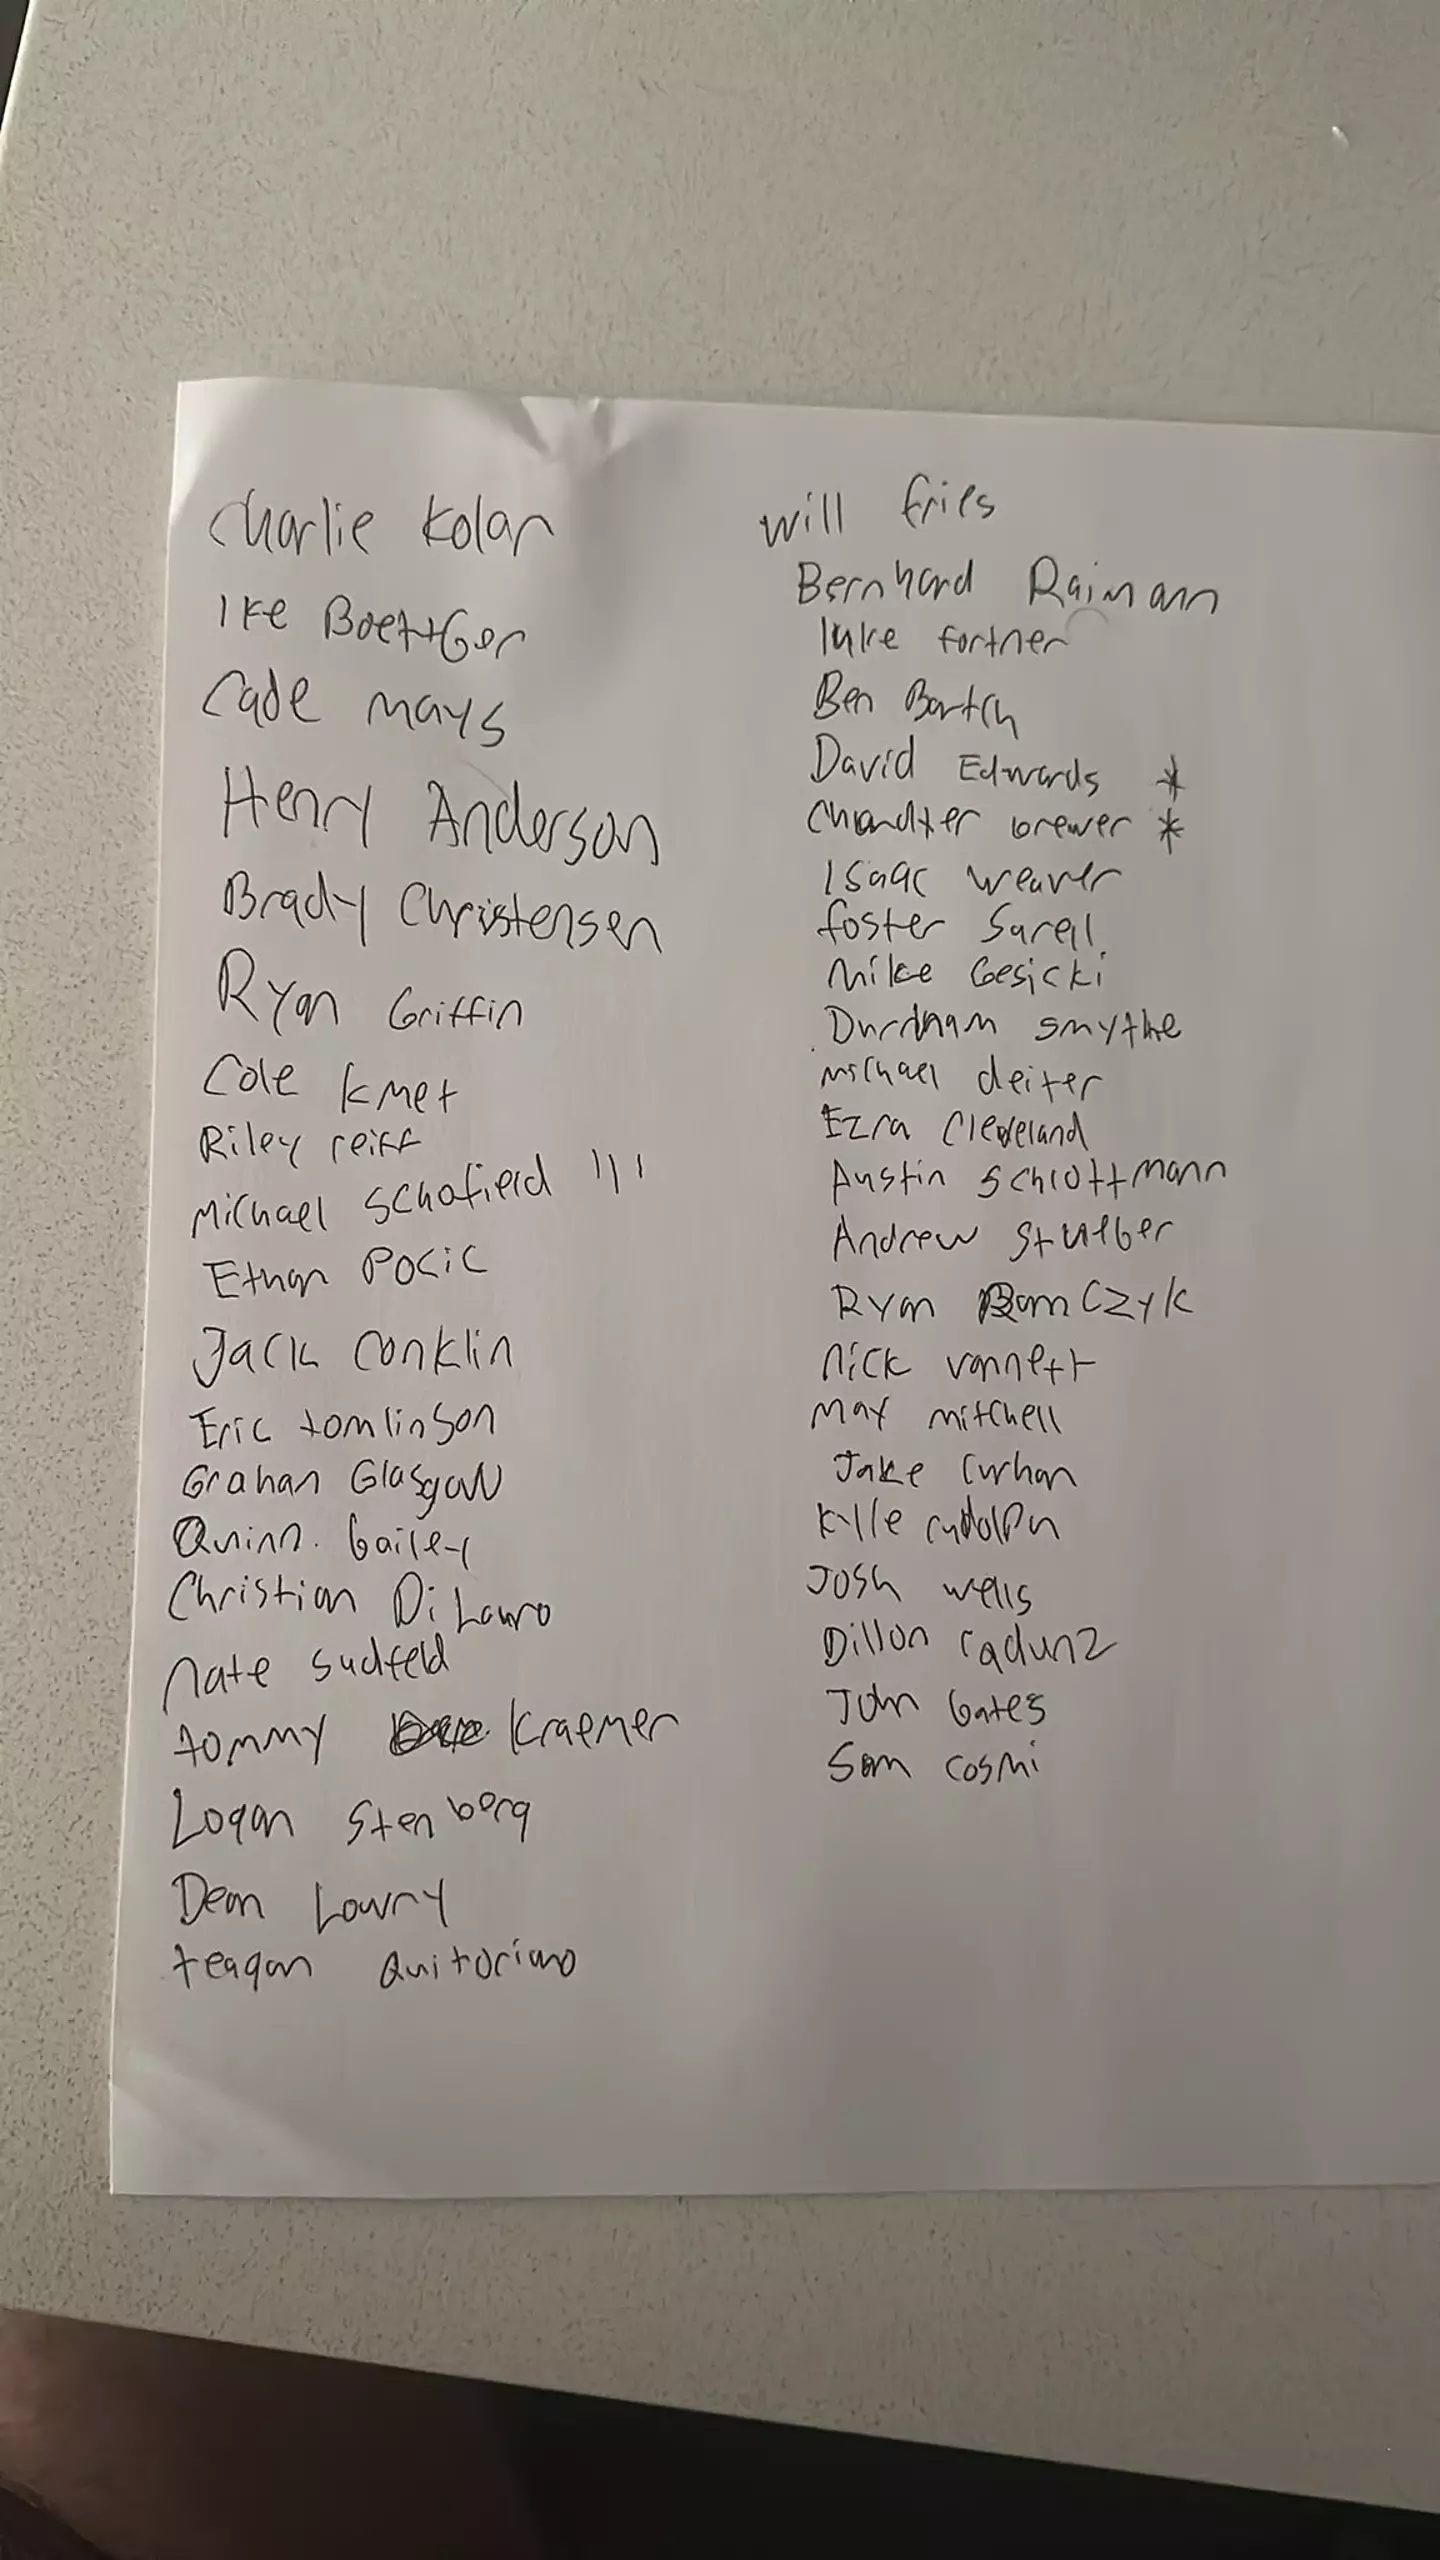 Charlie Kolar
Ike Boettger
Cade mays
Henry Anderson
Brady Christensen
Ryan Griffin
Cole kmet
Riley reiff
Michael Schofield III
Ethan Pocic
Jack Conklin
Eric tomlinson
Grahan Glasgow
Quinn. bailey
Christian DiLauro
Nate sudfeld
tommy Kraemer
Logan Stenberg
Dean Lowry
teagan Quitoriano
will fries
Bernhard Raimann
luke fortner
Ben Bartch
David Edwards *
Chandler brewer *
Isaac weaver
foster Sarell
Mike Gesicki
Durdham smythe
Michael deiter
Ezra Cleveland
Austin Schlottmann
Andrew Stueber
Ryan RamCzyk
nick vannett
Max mitchell
Jake Curhan
kylle rudolph
Josh wells
Dillon radunz
John bates
Sam cosmi